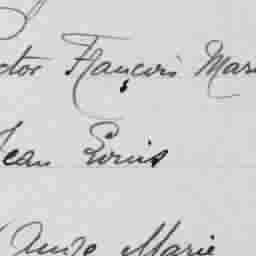 ctor François Mari
Jean Louis
Marie